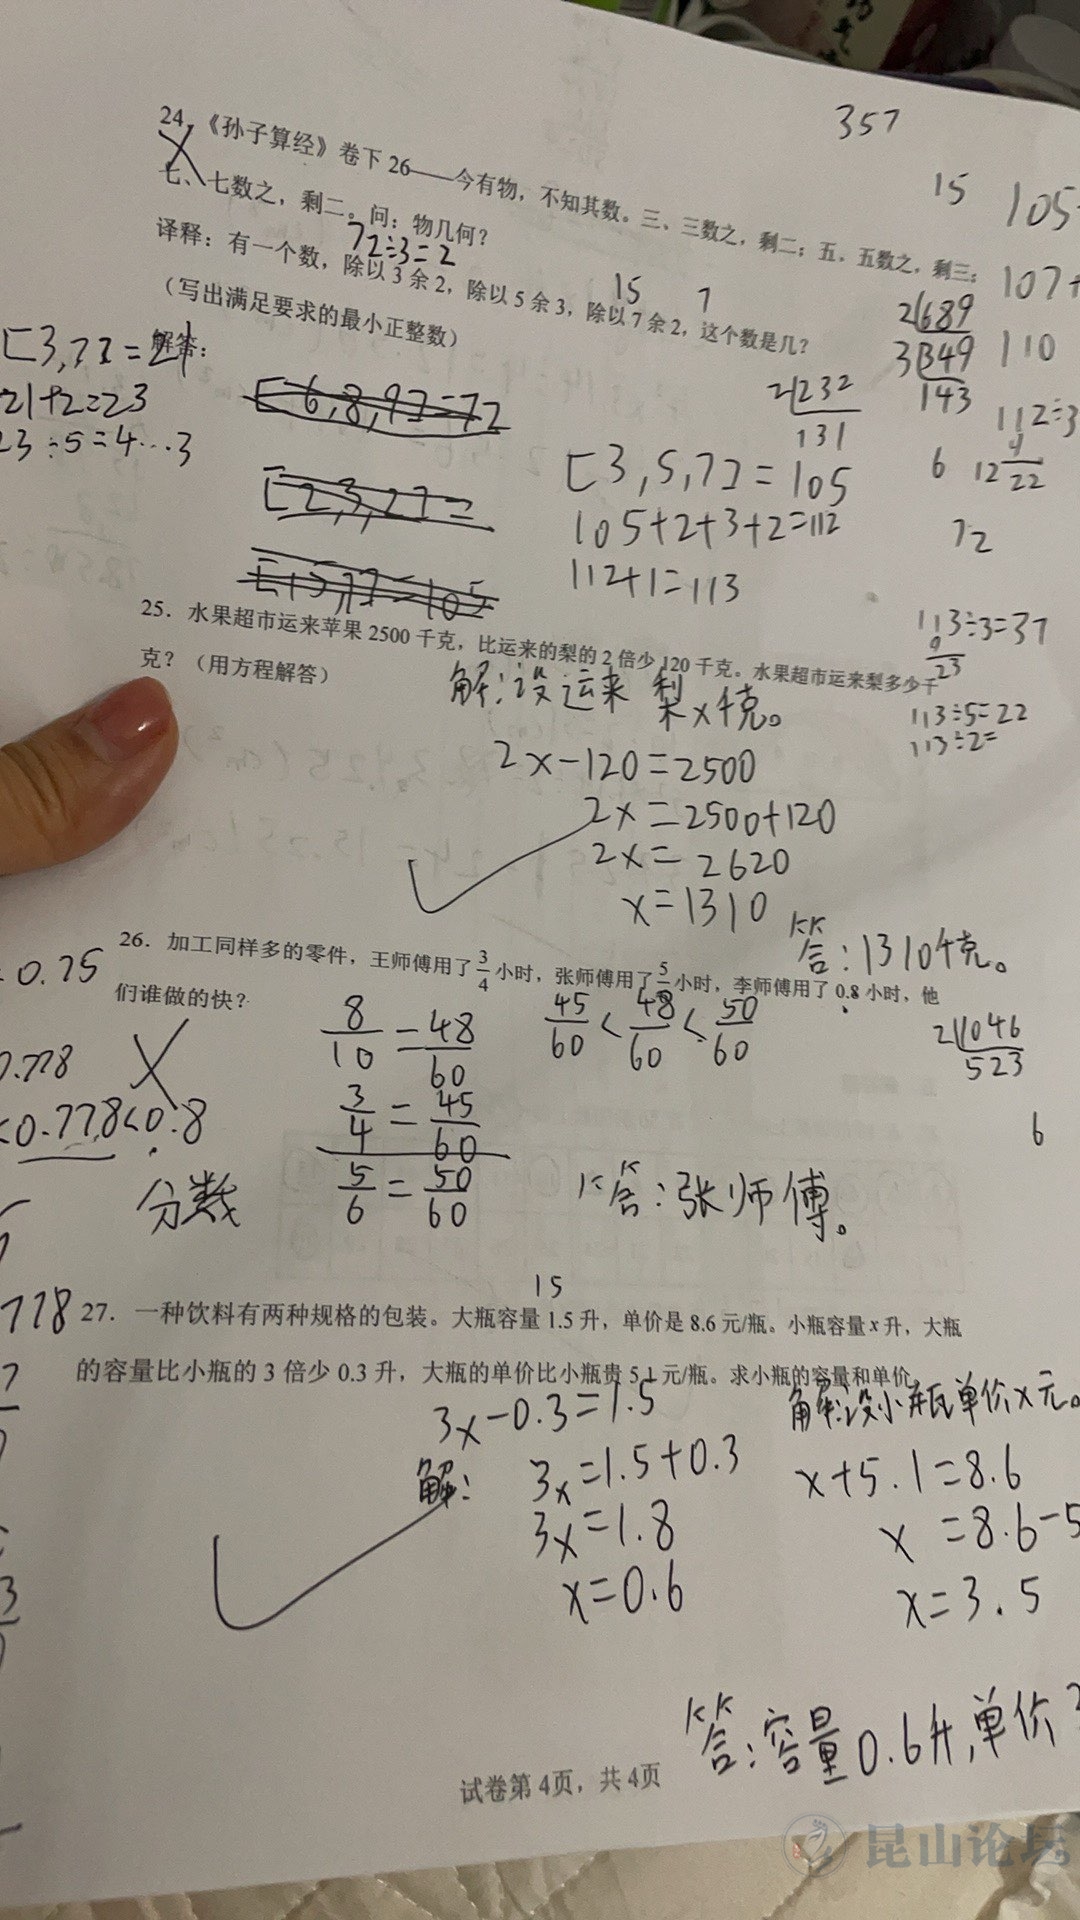 357
15
105
24.《孙子算经》卷下26——今有物，不知其数。三、三数之，剩二；五、五数之，剩三；
七、七数之，剩二。问：物几何？
72÷3=2
107+
译释：有一个数，除以3余2，除以5余3，除以7余2，这个数是几？
15 7
（写出满足要求的最小正整数）
解答：
[3,7]=21
21+2=23
23÷5=4…3
[6,8,9]=72
[2,3,2]=
[3,5,7]=105
105+2+3+2=112
112+1=113
2 689
3 349
143
110
2 232
131
112÷3
6
12
22
72
113÷3=37
9
23
113÷5=22
113÷2=
25. 水果超市运来苹果2500千克，比运来的梨的2倍少120千克。水果超市运来梨多少千
克？（用方程解答）
解：设运来梨x千克。
2x-120=2500
2x=2500+120
2x=2620
x=1310
答：1310千克。
26. 加工同样多的零件，王师傅用了3/4小时，张师傅用了5/6小时，李师傅用了0.8小时，他
们谁做的快？
0.75
0.778
<0.778<0.8
分数
8/10=48/60
3/4=45/60
5/6=50/60
45/60<48/60<50/60
2 1046
523
6
答：张师傅。
778
15
27. 一种饮料有两种规格的包装。大瓶容量1.5升，单价是8.6元/瓶。小瓶容量x升，大瓶
的容量比小瓶的3倍少0.3升，大瓶的单价比小瓶贵5.1元/瓶。求小瓶的容量和单价。
3x-0.3=1.5
解：
3x=1.5+0.3
3x=1.8
x=0.6
解：设小瓶单价x元。
x+5.1=8.6
x=8.6-5
x=3.5
答：容量0.6升，单价3
试卷第4页，共4页
昆山论坛